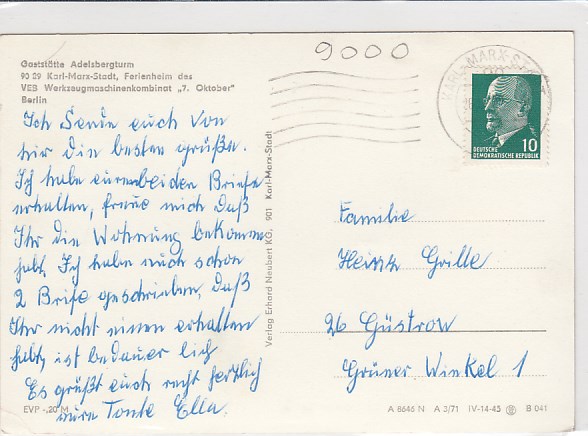 9000
Gaststätte Adelsbergturm
90 29 Karl-Marx-Stadt, Ferienheim des
VEB Werkzeugmaschinenkombinat „7. Oktober"
Berlin
KARL-MARX-STADT
10
DEUTSCHE
DEMOKRATISCHE REPUBLIK
Ich Sende euch von
hir die besten grüße.
Ich habe eure beiden Briefe
erhalten, freue mich daß
Ihr die Wohnung bekomm
habt. Ich habe euch schon
2 Brife geschrieben, daß
Ihr nicht einen erhalten
habt, ist bedauer lich
Es grüßt euch recht herzlich
eure Tante Ella.
EVP -,20 M
Verlag Erhard Neubert KG, 901 Karl-Marx-Stadt
Familie
Heinz Grille
26 Güstrow
Grüner Winkel 1
A 8646 N A 3/71 IV-14-45 B 041